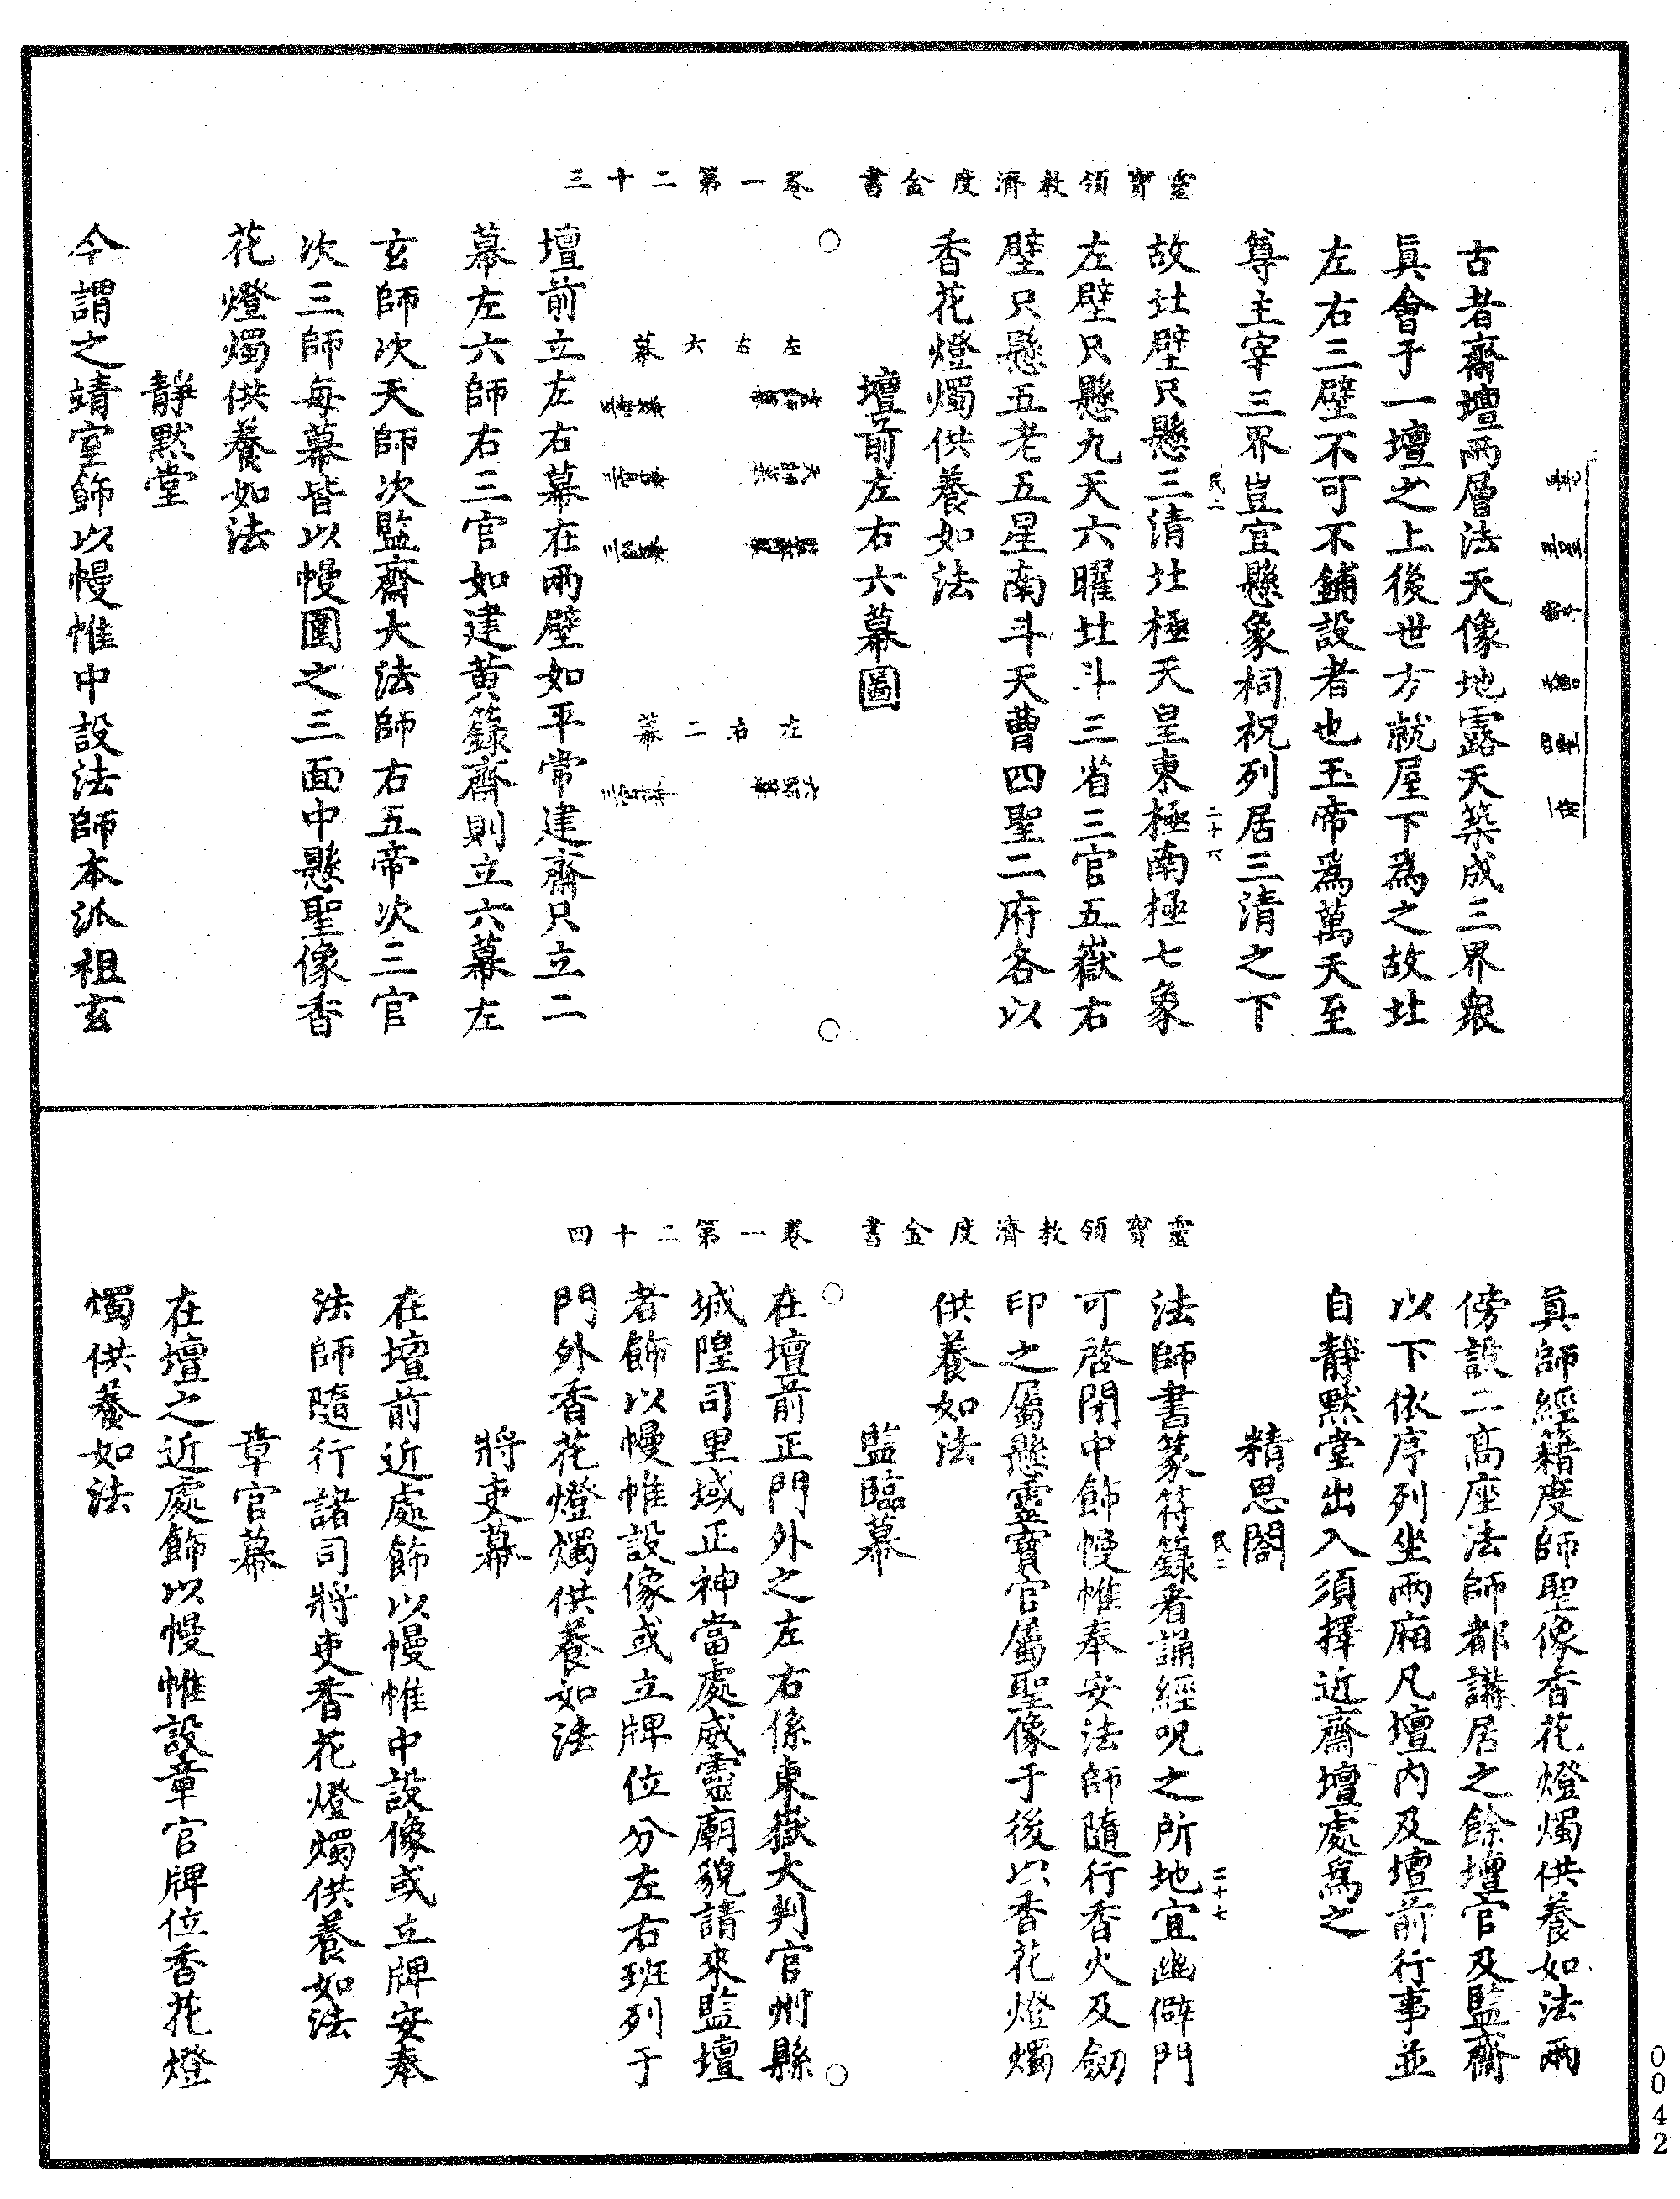 靈寶領教濟度金書 卷一第二十三
古者齋壇兩層法天像地露天築成三界衆
眞會于一壇之上後世方就屋下爲之故北
左右三壁不可不鋪設者也玉帝爲萬天至
尊主宰三界豈宜懸象祠祝列居三清之下
民二 二十六
故北壁只懸三清北極天皇東極南極七象
左壁只懸九天六曜北斗三省三官五嶽右
壁只懸五老五星南斗天曹四聖二府各以
香花燈燭供養如法
壇前左右六幕圖
左右六幕
左右二幕
壇前立左右幕在兩壁如平常建齋只立二
幕左六師右三官如建黄籙齋則立六幕左
玄師次天師次監齋大法師右五帝次三官
次三師每幕皆以幔圍之三面中懸聖像香
花燈燭供養如法
靜默堂
今謂之靖室飾以幔帷中設法師本派祖玄
靈寶領教濟度金書 卷一第二十四
眞師經籍度師聖像香花燈燭供養如法兩
傍設二高座法師都講居之餘壇官及監齋
以下依序列坐兩廂凡壇内及壇前行事並
自靜默堂出入須擇近齋壇處爲之
精思閤
民二 二十七
法師書篆符籙看誦經呪之所地宜幽僻門
可啓閉中飾幔帷奉安法師隨行香火及劒
印之屬懸靈寶官屬聖像于後以香花燈燭
供養如法
監臨幕
在壇前正門外之左右係東嶽大判官州縣
城隍司里域正神當處威靈廟貌請來監壇
者飾以幔帷設像或立牌位分左右班列于
門外香花燈燭供養如法
將吏幕
在壇前近處飾以幔帷中設像或立牌安奉
法師隨行諸司將吏香花燈燭供養如法
章官幕
在壇之近處飾以幔帷設章官牌位香花燈
燭供養如法
0042